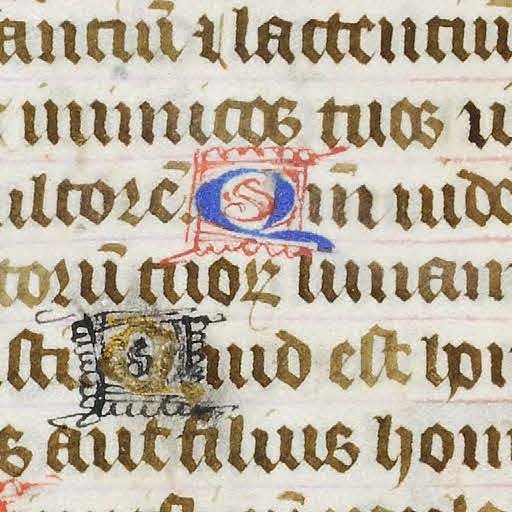 antiū ⁊ lactentiu
inimicos tuos u
ultorē. Qm̄ uide
torū tuoꝝ lunam
sti Quid est ho
s aut filius hom